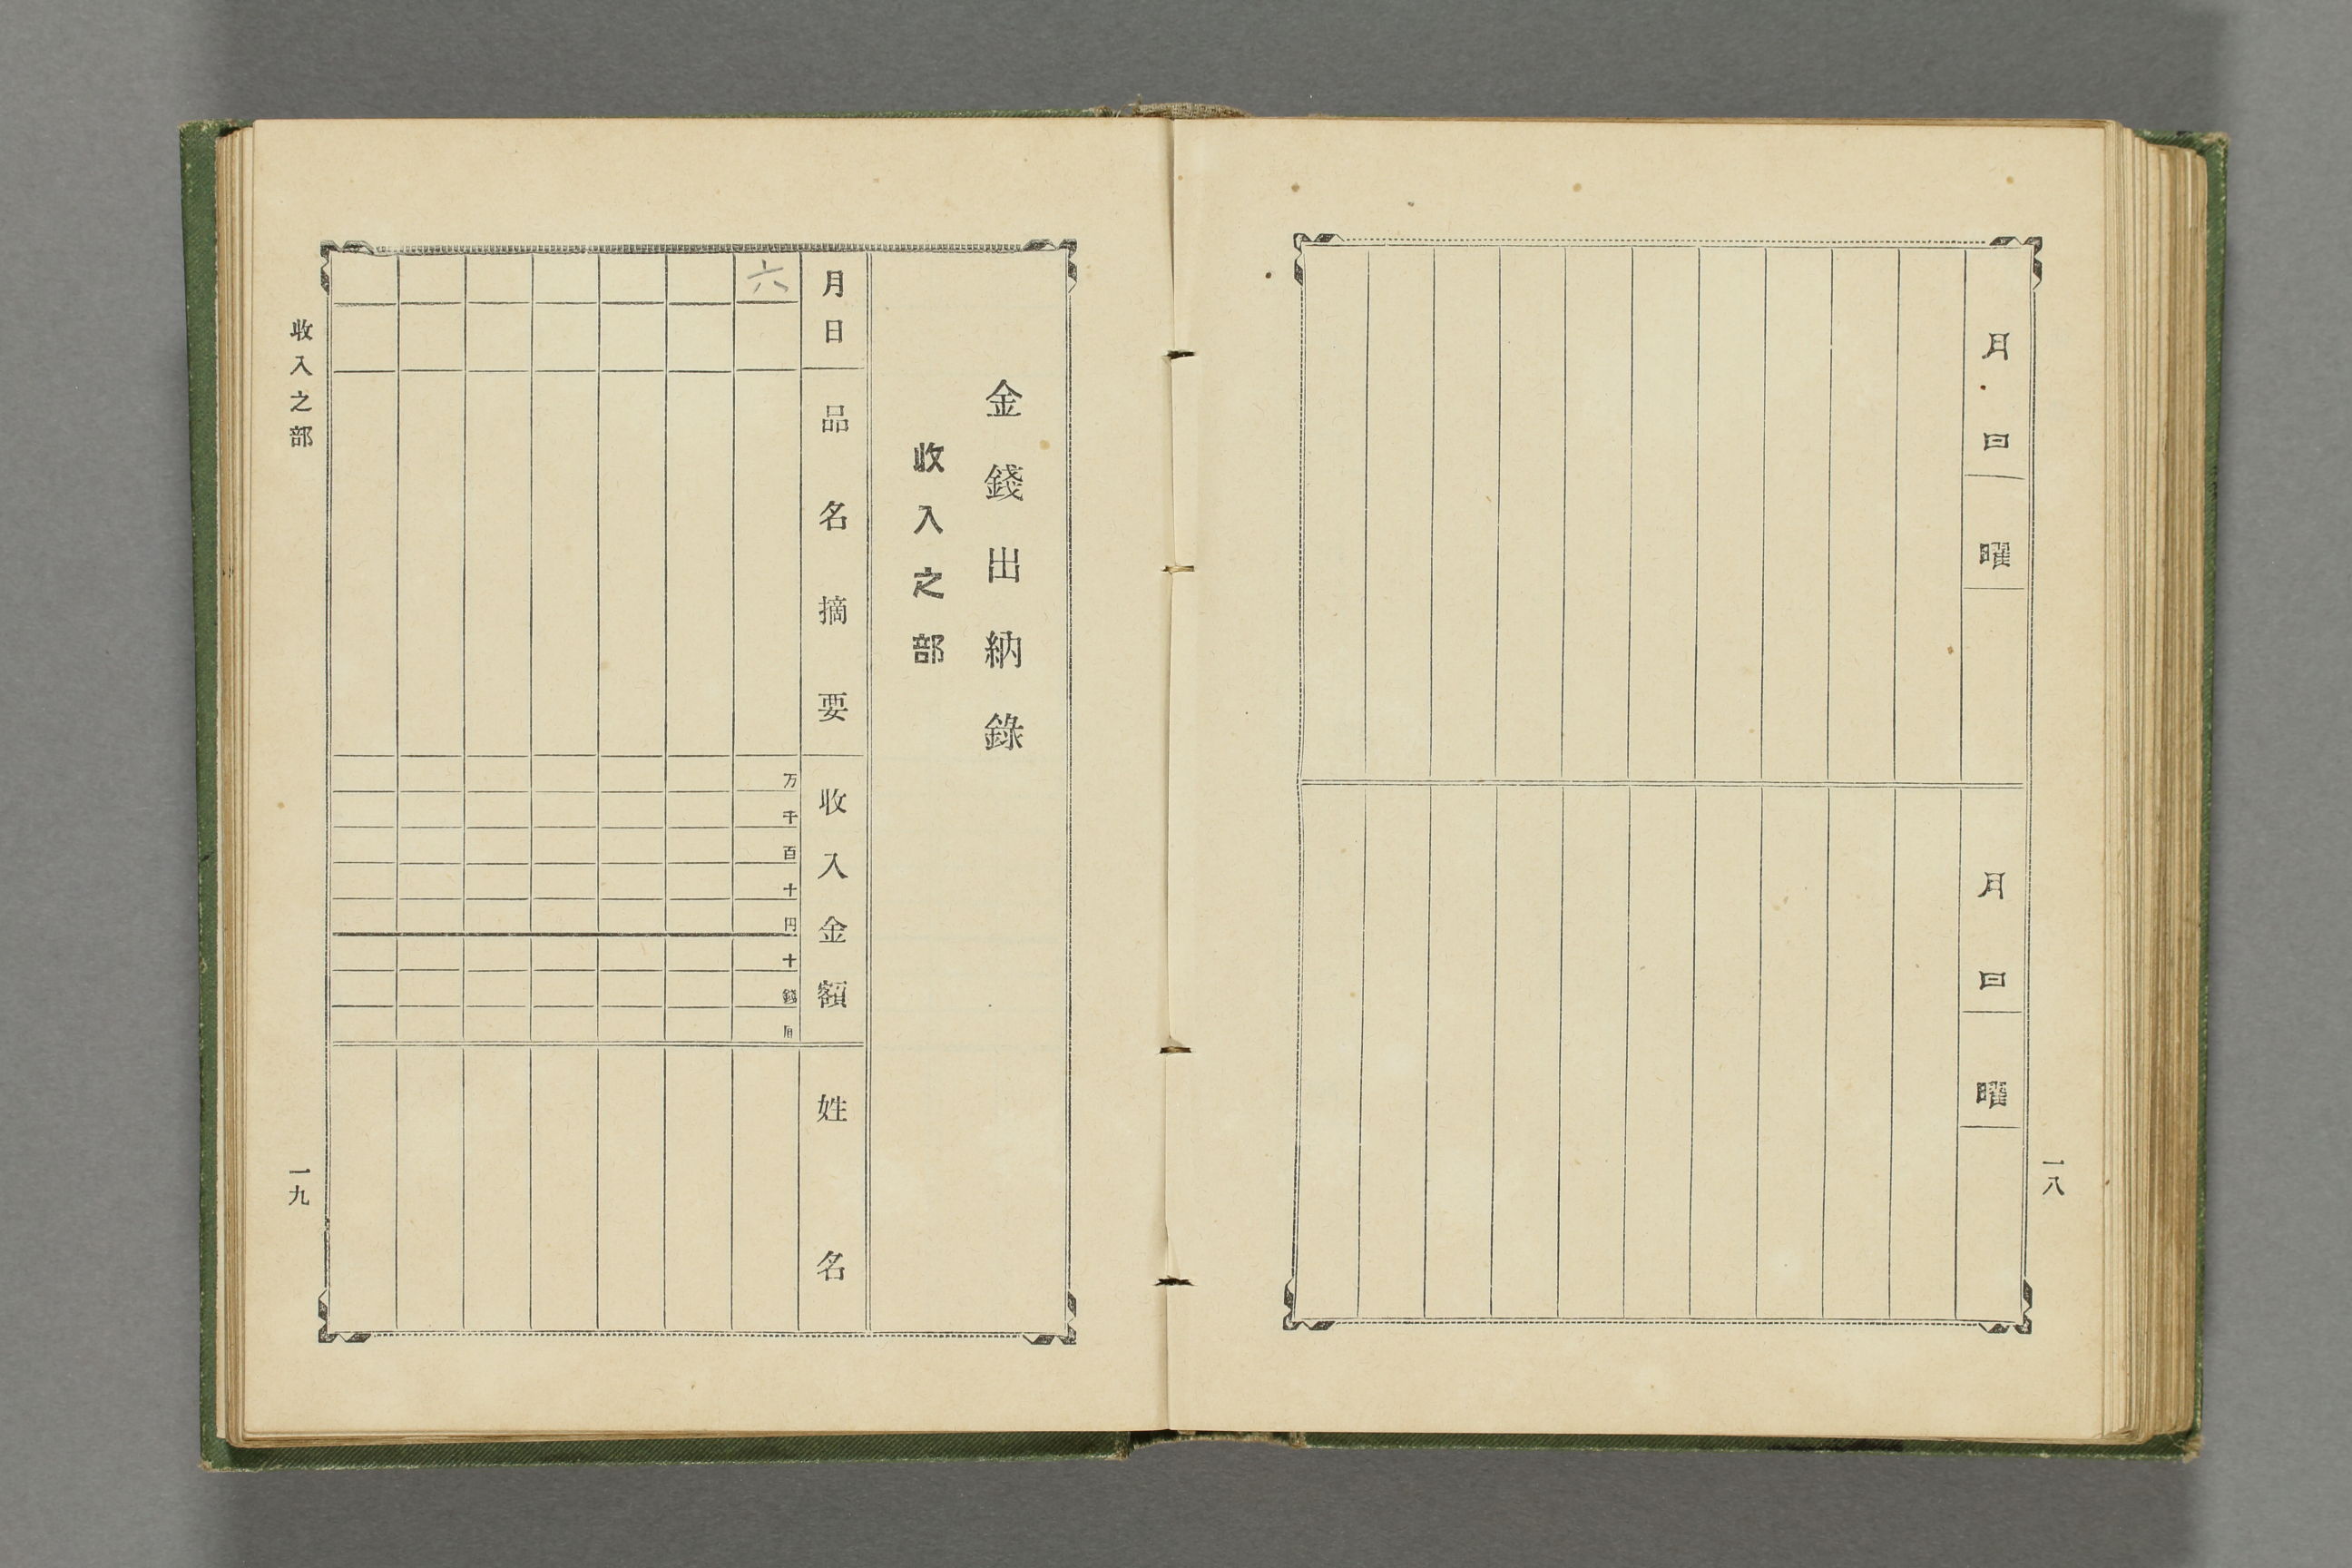 月日
曜
月日
曜
一八
金錢出納錄
收入之部
月日
品名摘要
收入金額
姓名
六
万
千
百
十
円
十
錢
厘
收入之部
一九